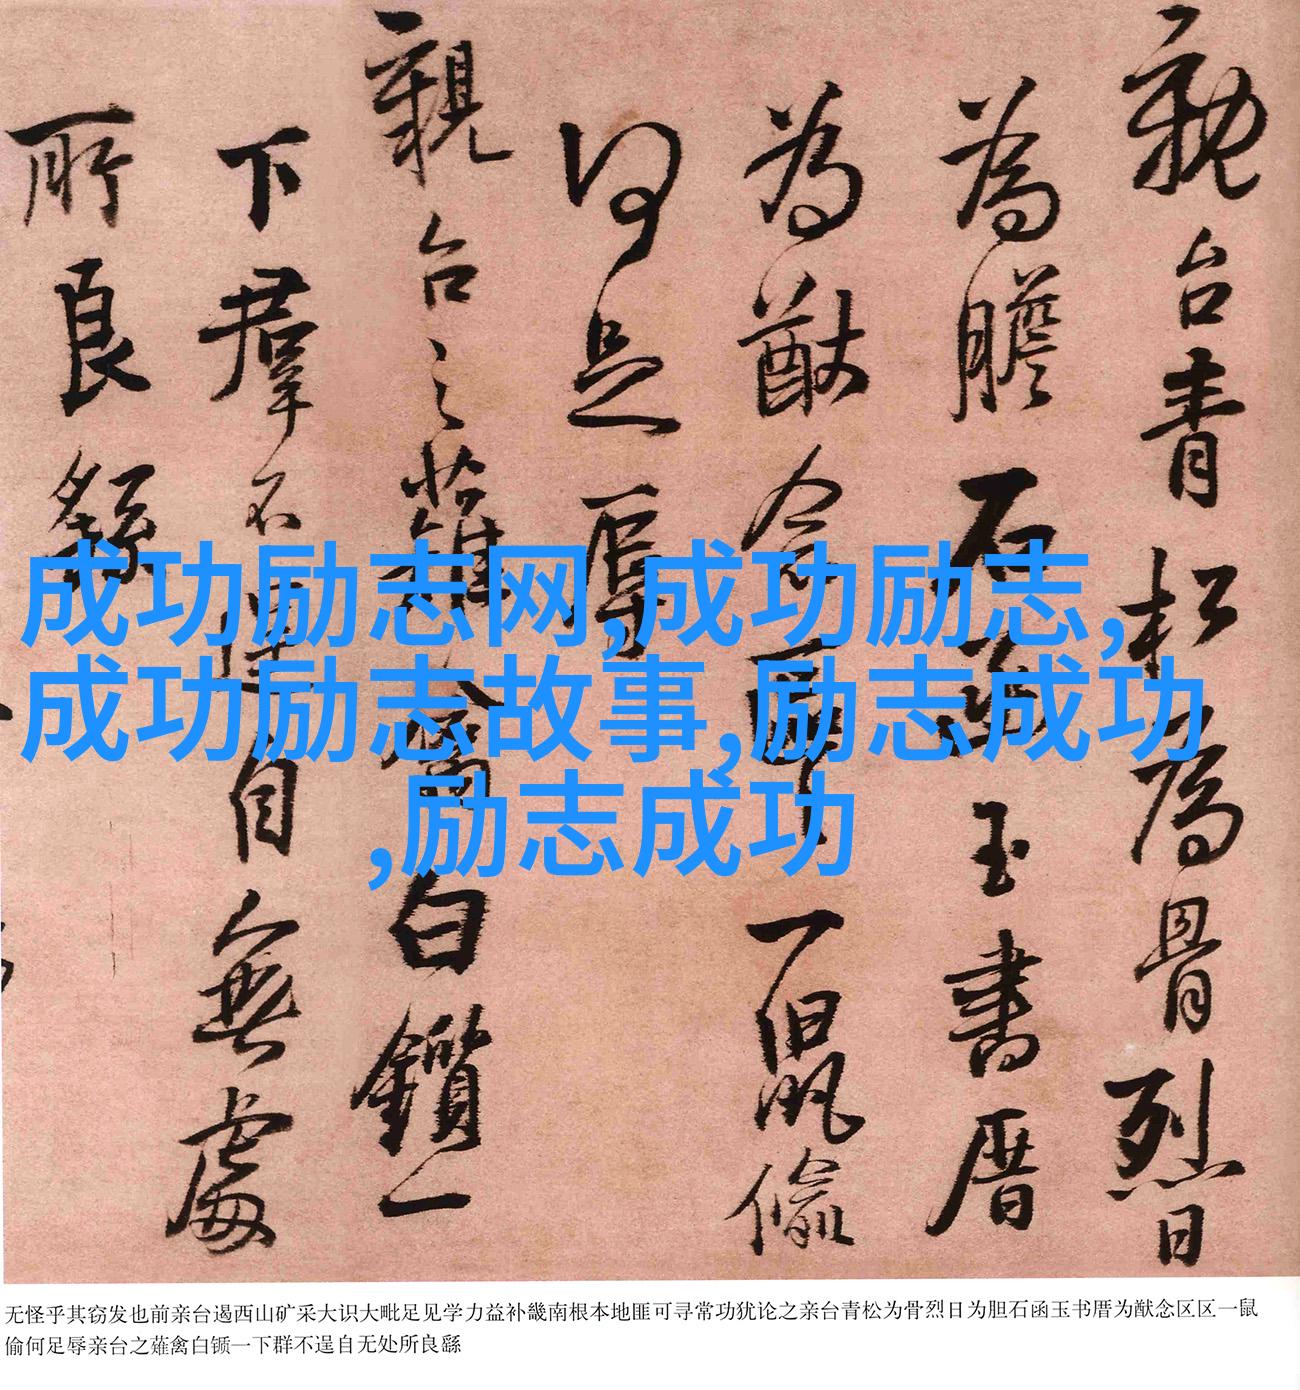 親台青松為骨烈日
為膽石函玉書厝
為猷念區區一鼠偷
何足辱
親台之薙禽白鑕一
下群不逞自無處
所良繇
成功励志网,成功励志,
成功励志故事,励志成功
,励志成功
无怪乎其窃发也前亲台遏西山矿采大识大毗足见学力益补畿南根本地匪可寻常功犹论之亲台青松为骨烈日为胆石函玉书厝为猷念区区一鼠
偷何足辱亲台之薙禽白锧一下群不逞自无处所良繇